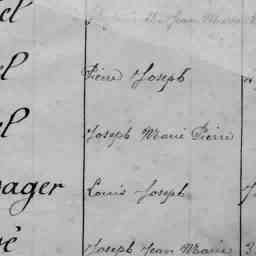 el
l Pierre Joseph
el Joseph Marie Pierre
ager Louis Joseph J
é Joseph Jean Marie 3